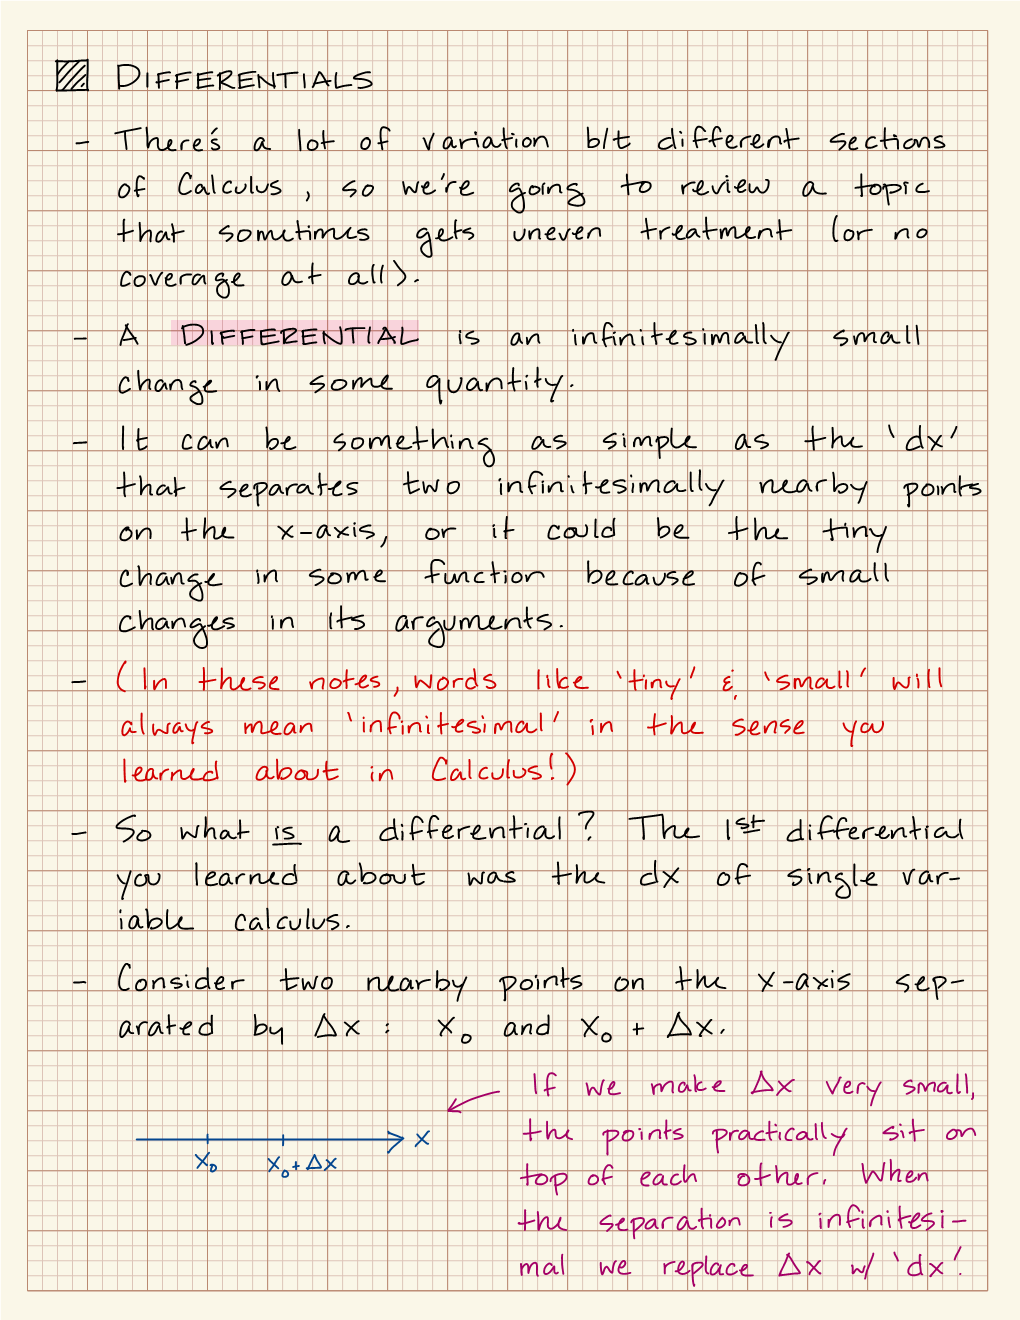 DIFFERENTIALS
- There's a lot of variation b/t different sections
of Calculus, so we're going to review a topic
that sometimes gets uneven treatment (or no
coverage at all).
- A DIFFERENTIAL is an infinitesimally small
change in some quantity.
- It can be something as simple as the 'dx'
that separates two infinitesimally nearby points
on the x-axis, or it could be the tiny
change in some function because of small
changes in its arguments.
- (In these notes, words like 'tiny' & 'small' will
always mean 'infinitesimal' in the sense you
learned about in Calculus!)
- So what is a differential? The 1st differential
you learned about was the dx of single var-
iable calculus.
- Consider two nearby points on the x-axis sep-
arated by Δx : x₀ and x₀ + Δx.
If we make Δx very small,
the points practically sit on
top of each other. When
the separation is infinitesi-
mal we replace Δx w/ 'dx'.
x
x₀
x₀ + Δx